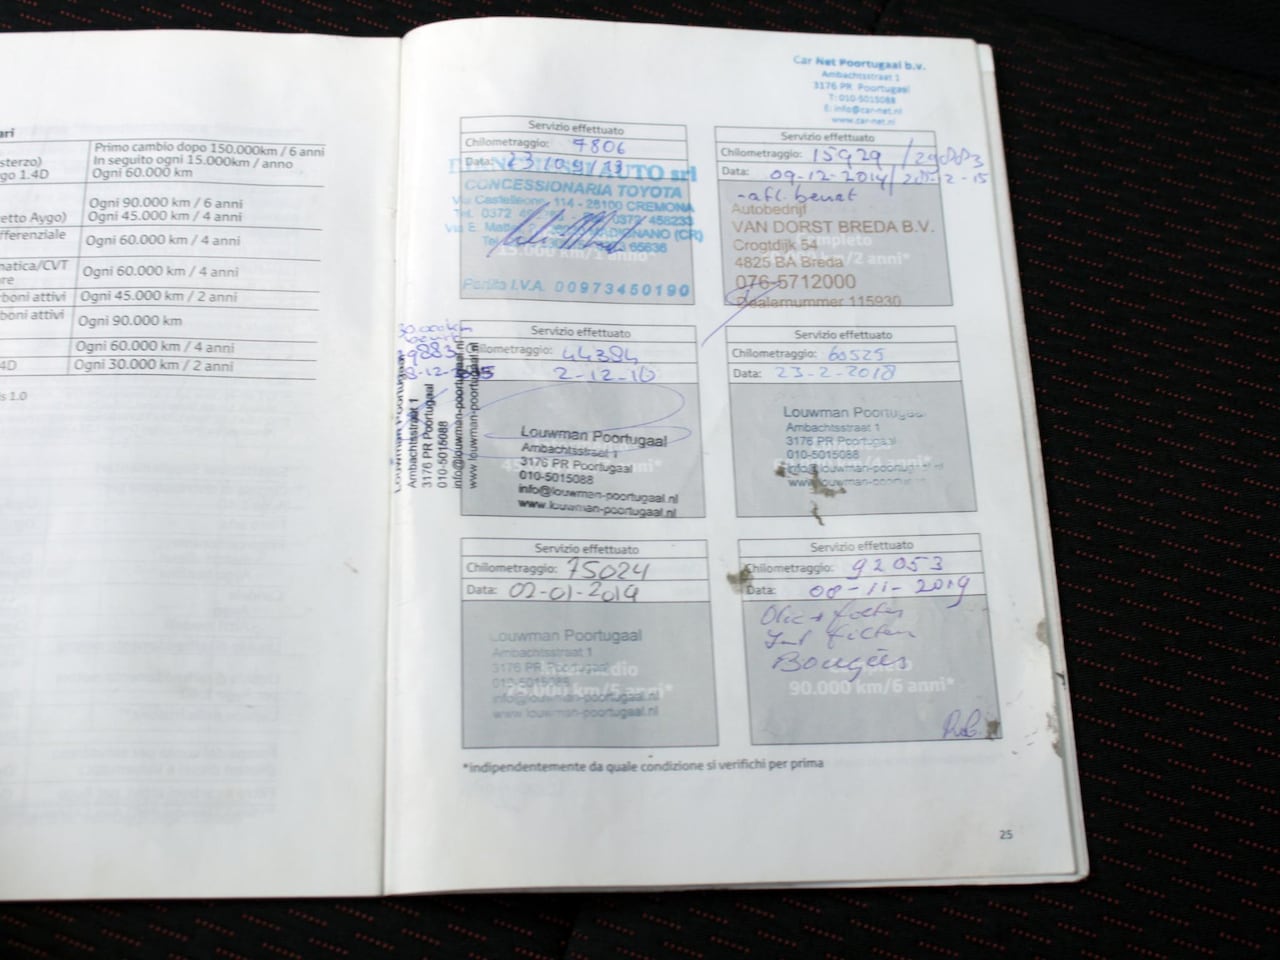 ari
Primo cambio dopo 150.000km / 6 anni
sterzo) In seguito ogni 15.000km / anno
go 1.4D Ogni 60.000 km
Ogni 90.000 km / 6 anni
etto Aygo) Ogni 45.000 km / 4 anni
fferenziale Ogni 60.000 km / 4 anni
matica/CVT Ogni 60.000 km / 4 anni
re
boni attivi Ogni 45.000 km / 2 anni
boni attivi Ogni 90.000 km
Ogni 60.000 km / 4 anni
4D Ogni 30.000 km / 2 anni
is 1.0
Car Net Poortugaal b.v.
Ambachtsstraat 1
3176 PR Poortugaal
T: 010-5015088
E: info@car-net.nl
www.car-net.nl
Servizio effettuato
Chilometraggio: 7806
Data: 23/09/13
AUTO srl
CONCESSIONARIA TOYOTA
Via Castelleone, 114 - 26100 CREMONA
Tel. 0372 0372 458233
Via E. MADIGNANO (CR)
Tel. 65636
15.000 km/1 anno*
Partita I.V.A. 00973450190
Servizio effettuato
Chilometraggio: 15929 / 29883
Data: 09-12-2014
Autobedrijf
VAN DORST BREDA B.V.
Crogtdijk 54
4825 BA Breda
/2 anni*
076-5712000
Dealernummer 115930
30.000 km
Louwman Poortugaal
Ambachtsstraat 1
3176 PR Poortugaal
010-5015088
info@louwman-poortugaal.nl
www.louwman-poortugaal.nl
Servizio effettuato
Chilometraggio: 44384
Data: 2-12-16
Louwman Poortugaal
Ambachtsstraat 1
3176 PR Poortugaal
010-5015088
info@louwman-poortugaal.nl
www.louwman-poortugaal.nl
Servizio effettuato
Chilometraggio: 60525
Data: 23-2-2018
Louwman Poortugaal
Ambachtsstraat 1
3176 PR Poortugaal
010-5015088
info@louwman-poortugaal.nl
www.louwman-poortugaal.nl
Servizio effettuato
Chilometraggio: 75024
Data: 02-01-2019
Louwman Poortugaal
Ambachtsstraat 1
3176 PR Poortugaal
010-5015088
75.000 km/5 anni*
info@louwman-poortugaal.nl
www.louwman-poortugaal.nl
Servizio effettuato
Chilometraggio: 92053
Data: 08-11-2019
Olie + filter
filter
Bougies
90.000 km/6 anni*
*indipendentemente da quale condizione si verifichi per prima
25